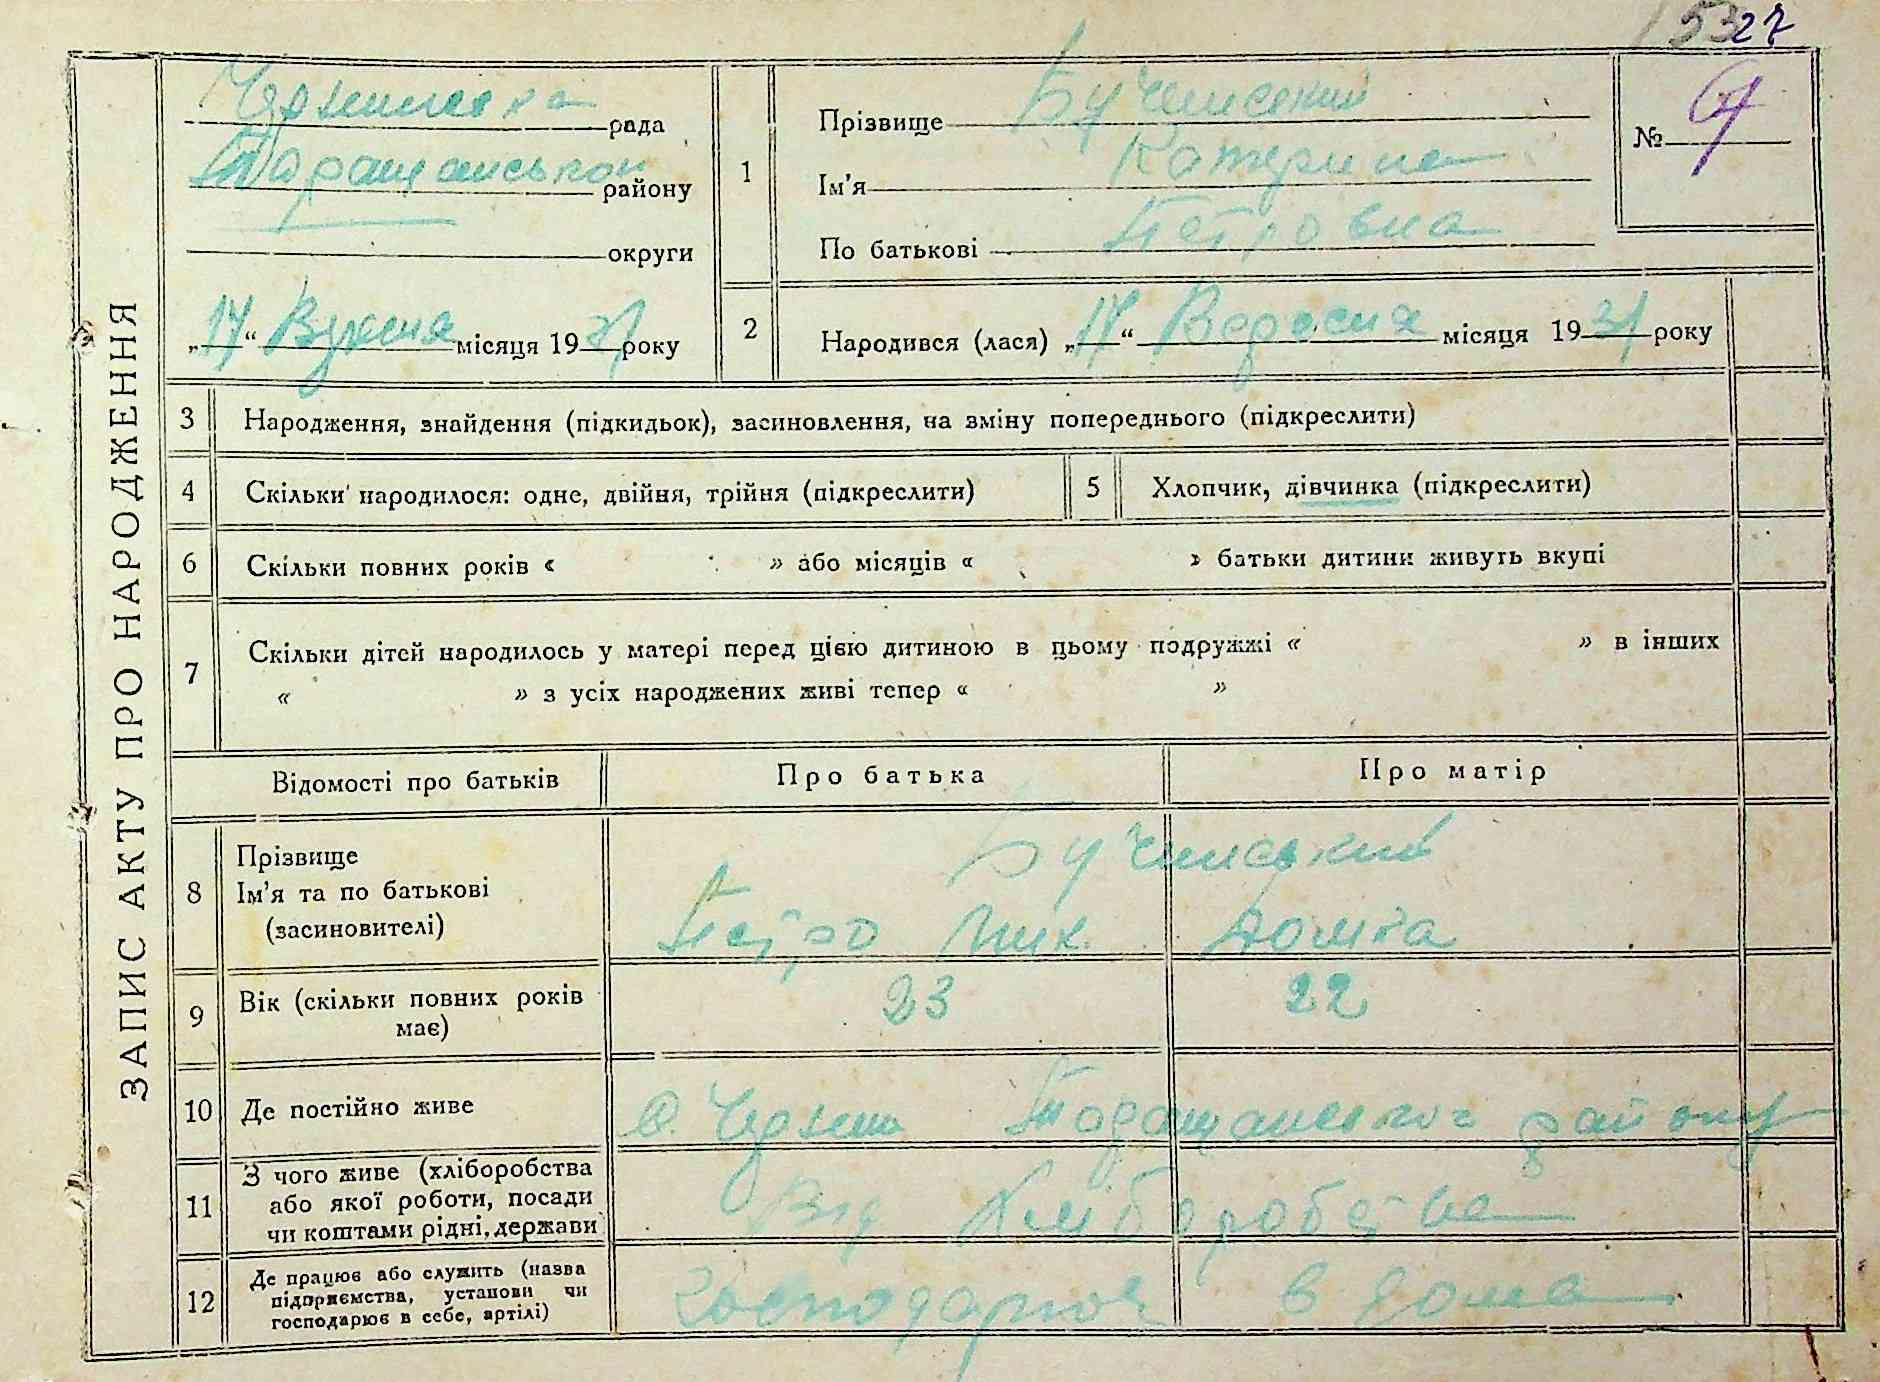 5327
ЗАПИС АКТУ ПРО НАРОДЖЕННЯ
рада
Таращанського району
округи
„17“ місяця 1931 року
1
Прізвище Бучинський
Ім'я Катерина
По батькові Петровна
№
2
Народився (лася) „17“ Вересня місяця 1931 року
3 Народження, знайдення (підкидьок), засиновлення, на зміну попереднього (підкреслити)
4 Скільки народилося: одне, двійня, трійня (підкреслити)
5 Хлопчик, дівчинка (підкреслити)
6 Скільки повних років « » або місяців « » батьки дитини живуть вкупі
7 Скільки дітей народилось у матері перед цією дитиною в цьому подружжі « » в інших
« » з усіх народжених живі тепер « »
Відомості про батьків Про батька Про матір
8 Прізвище
Ім'я та по батькові
(засиновителі)
Бучинський
Петро Мик. Домка
9 Вік (скільки повних років
має)
23 22
10 Де постійно живе
Таращанського району
11 З чого живе (хліборобства
або якої роботи, посади
чи коштами рідні, держави
Від Хліборобства
12 Де працює або служить (назва
підприємства, установи чи
господарює в себе, артілі)
господарює в дома